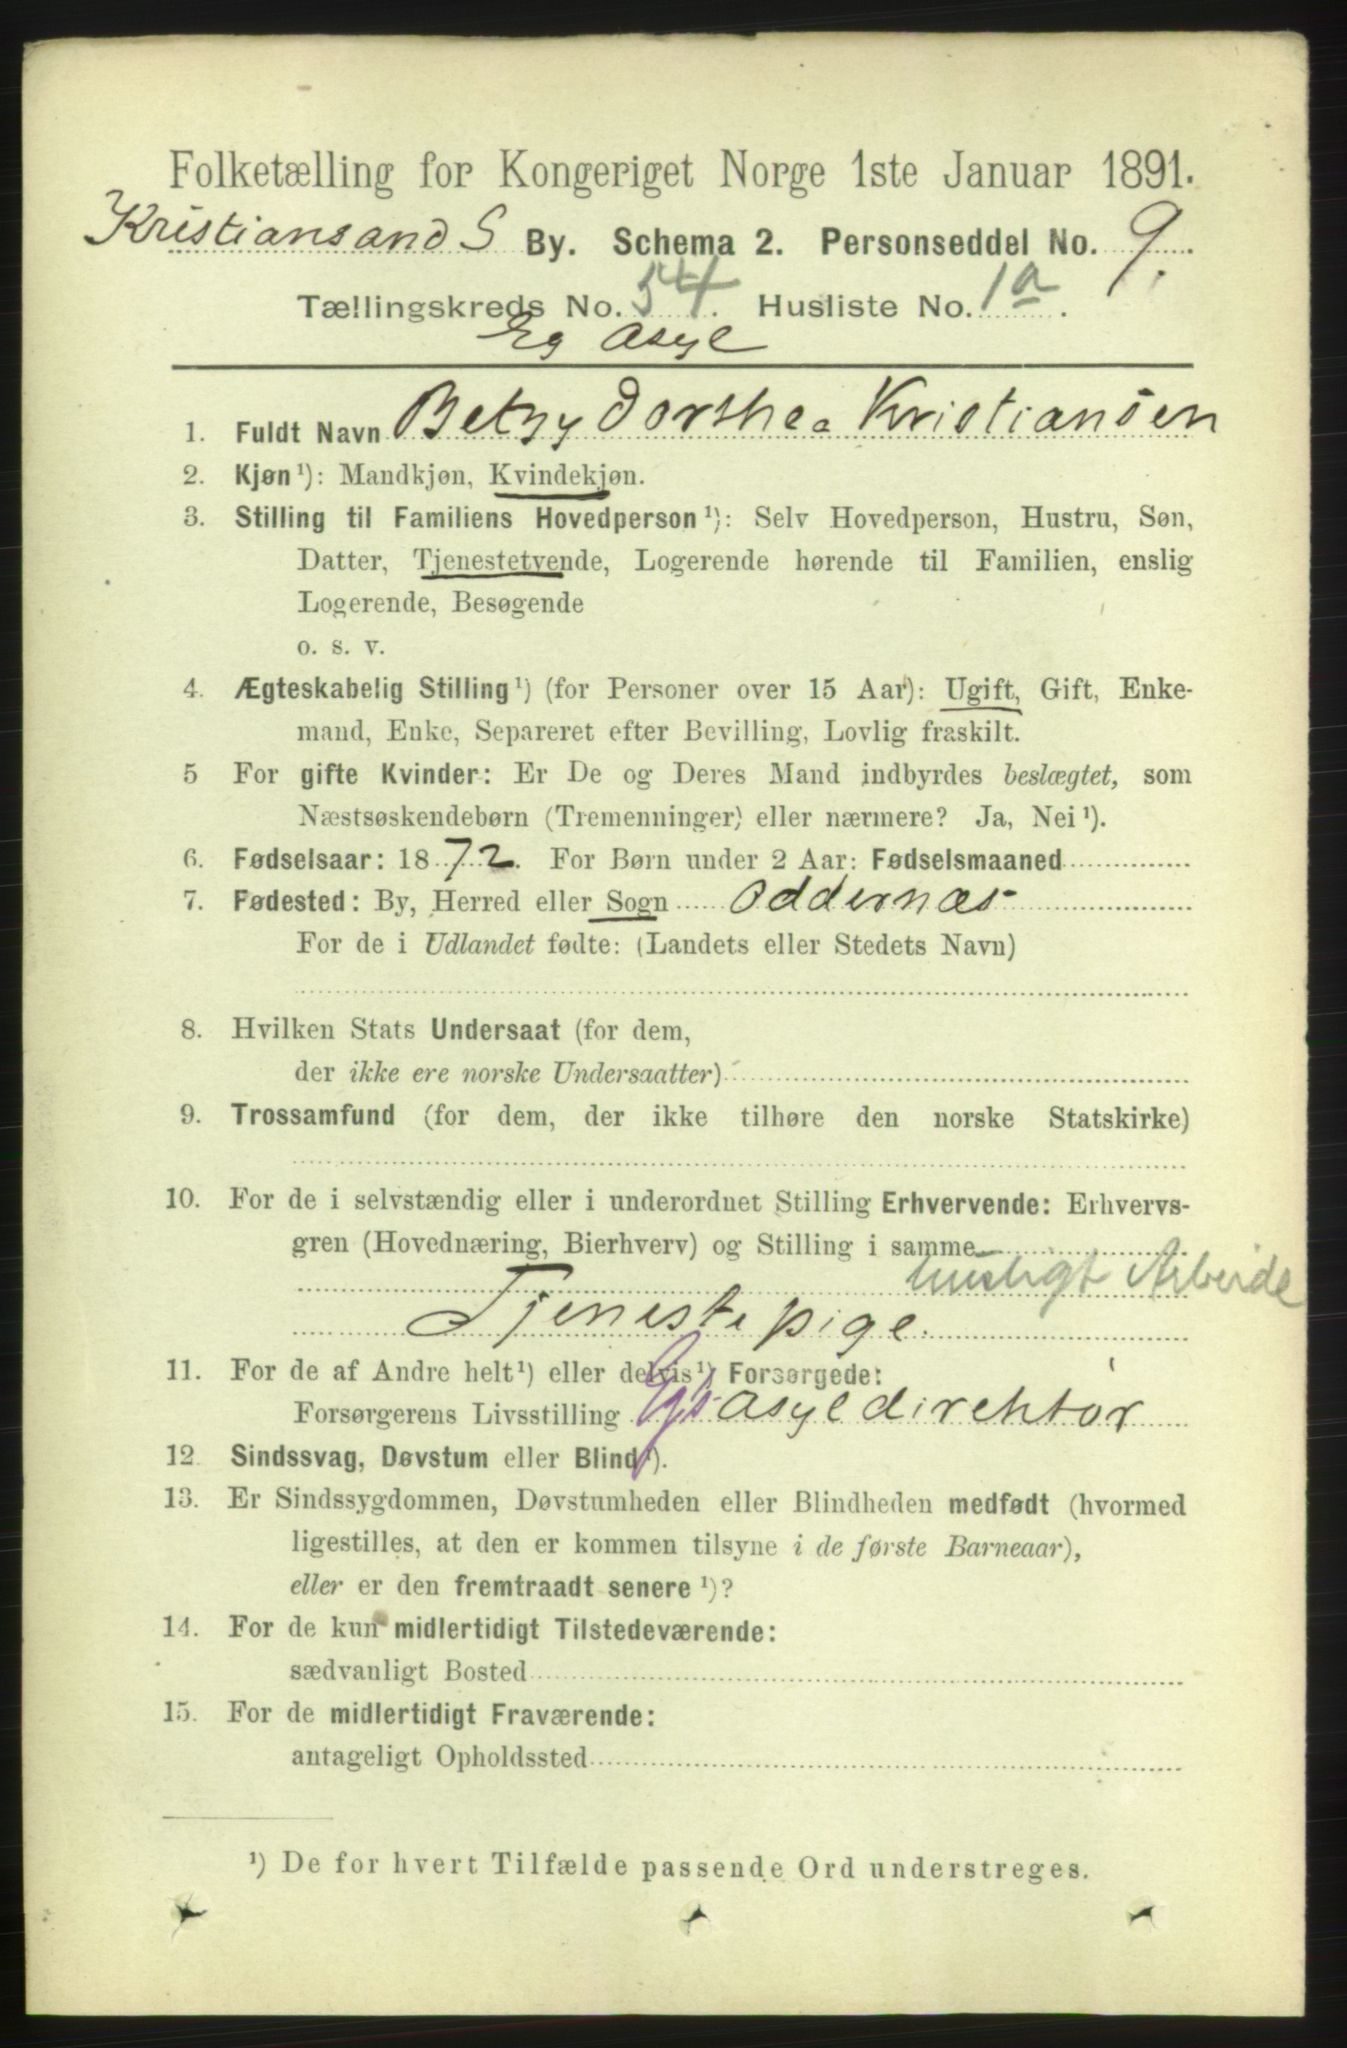 Folketælling for Kongeriget Norge 1ste Januar 1891.
Kristiansand S By. Schema 2. Personseddel No. 9.
Tællingskreds No. 54. Husliste No. 1a.
Eg Asyl
1. Fuldt Navn Betsy Dorthea Kristiansen
2. Kjøn¹): Mandkjøn, Kvindekjøn.
3. Stilling til Familiens Hovedperson¹): Selv Hovedperson, Hustru, Søn,
Datter, Tjenestetyende, Logerende hørende til Familien, enslig
Logerende, Besøgende
o. s. v.
4. Ægteskabelig Stilling¹) (for Personer over 15 Aar): Ugift, Gift, Enke-
mand, Enke, Separeret efter Bevilling, Lovlig fraskilt.
5 For gifte Kvinder: Er De og Deres Mand indbyrdes beslægtet, som
Næstsøskendebørn (Tremenninger) eller nærmere? Ja, Nei¹).
6. Fødselsaar: 1872. For Børn under 2 Aar: Fødselsmaaned
7. Fødested: By, Herred eller Sogn Oddernæs
For de i Udlandet fødte: (Landets eller Stedets Navn)
8. Hvilken Stats Undersaat (for dem,
der ikke ere norske Undersaatter)
9. Trossamfund (for dem, der ikke tilhøre den norske Statskirke)
10. For de i selvstændig eller i underordnet Stilling Erhvervende: Erhvervs-
gren (Hovednæring, Bierhverv) og Stilling i samme
husligt Arbeide
Tjenestepige.
11. For de af Andre helt¹) eller delvis¹) Forsørgede:
Forsørgerens Livsstilling Asyldirektör
12. Sindssvag, Døvstum eller Blind¹).
13. Er Sindssygdommen, Døvstumheden eller Blindheden medfødt (hvormed
ligestilles, at den er kommen tilsyne i de første Barneaar),
eller er den fremtraadt senere¹)?
14. For de kun midlertidigt Tilstedeværende:
sædvanligt Bosted
15. For de midlertidigt Fraværende:
antageligt Opholdssted
¹) De for hvert Tilfælde passende Ord understreges.